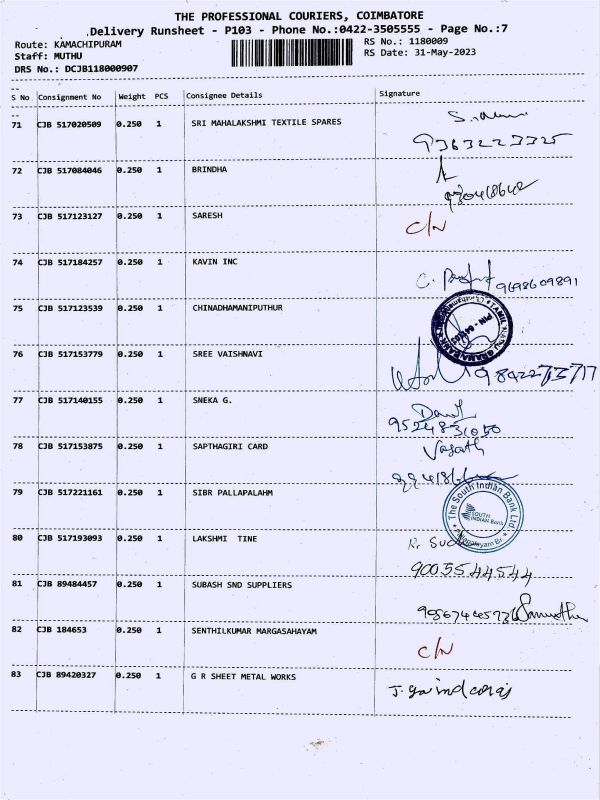 THE PROFESSIONAL COURIERS, COIMBATORE
Delivery Runsheet - P103 - Phone No.:0422-3505555 - Page No.:7
Route: KAMACHIPURAM RS No.: 1180009
Staff: MUTHU RS Date: 31-May-2023
DRS No.: DCJB118000907
S No Consignment No Weight PCS Consignee Details Signature
71 CJB 517020509 0.250 1 SRI MAHALAKSHMI TEXTILE SPARES
9363223325
72 CJB 517084046 0.250 1 BRINDHA
73 CJB 517123127 0.250 1 SARESH C/N
74 CJB 517184257 0.250 1 KAVIN INC
9698609891
75 CJB 517123539 0.250 1 CHINADHAMANIPUTHUR
76 CJB 517153779 0.250 1 SREE VAISHNAVI
77 CJB 517140155 0.250 1 SNEKA G.
9524831050
78 CJB 517153875 0.250 1 SAPTHAGIRI CARD
79 CJB 517221161 0.250 1 SIBR PALLAPALAHM
The South Indian Bank Ltd.
SOUTH INDIAN Bank
80 CJB 517193093 0.250 1 LAKSHMI TINE
9003544544
81 CJB 89484457 0.250 1 SUBASH SND SUPPLIERS
82 CJB 184653 0.250 1 SENTHILKUMAR MARGASAHAYAM C/N
83 CJB 89420327 0.250 1 G R SHEET METAL WORKS